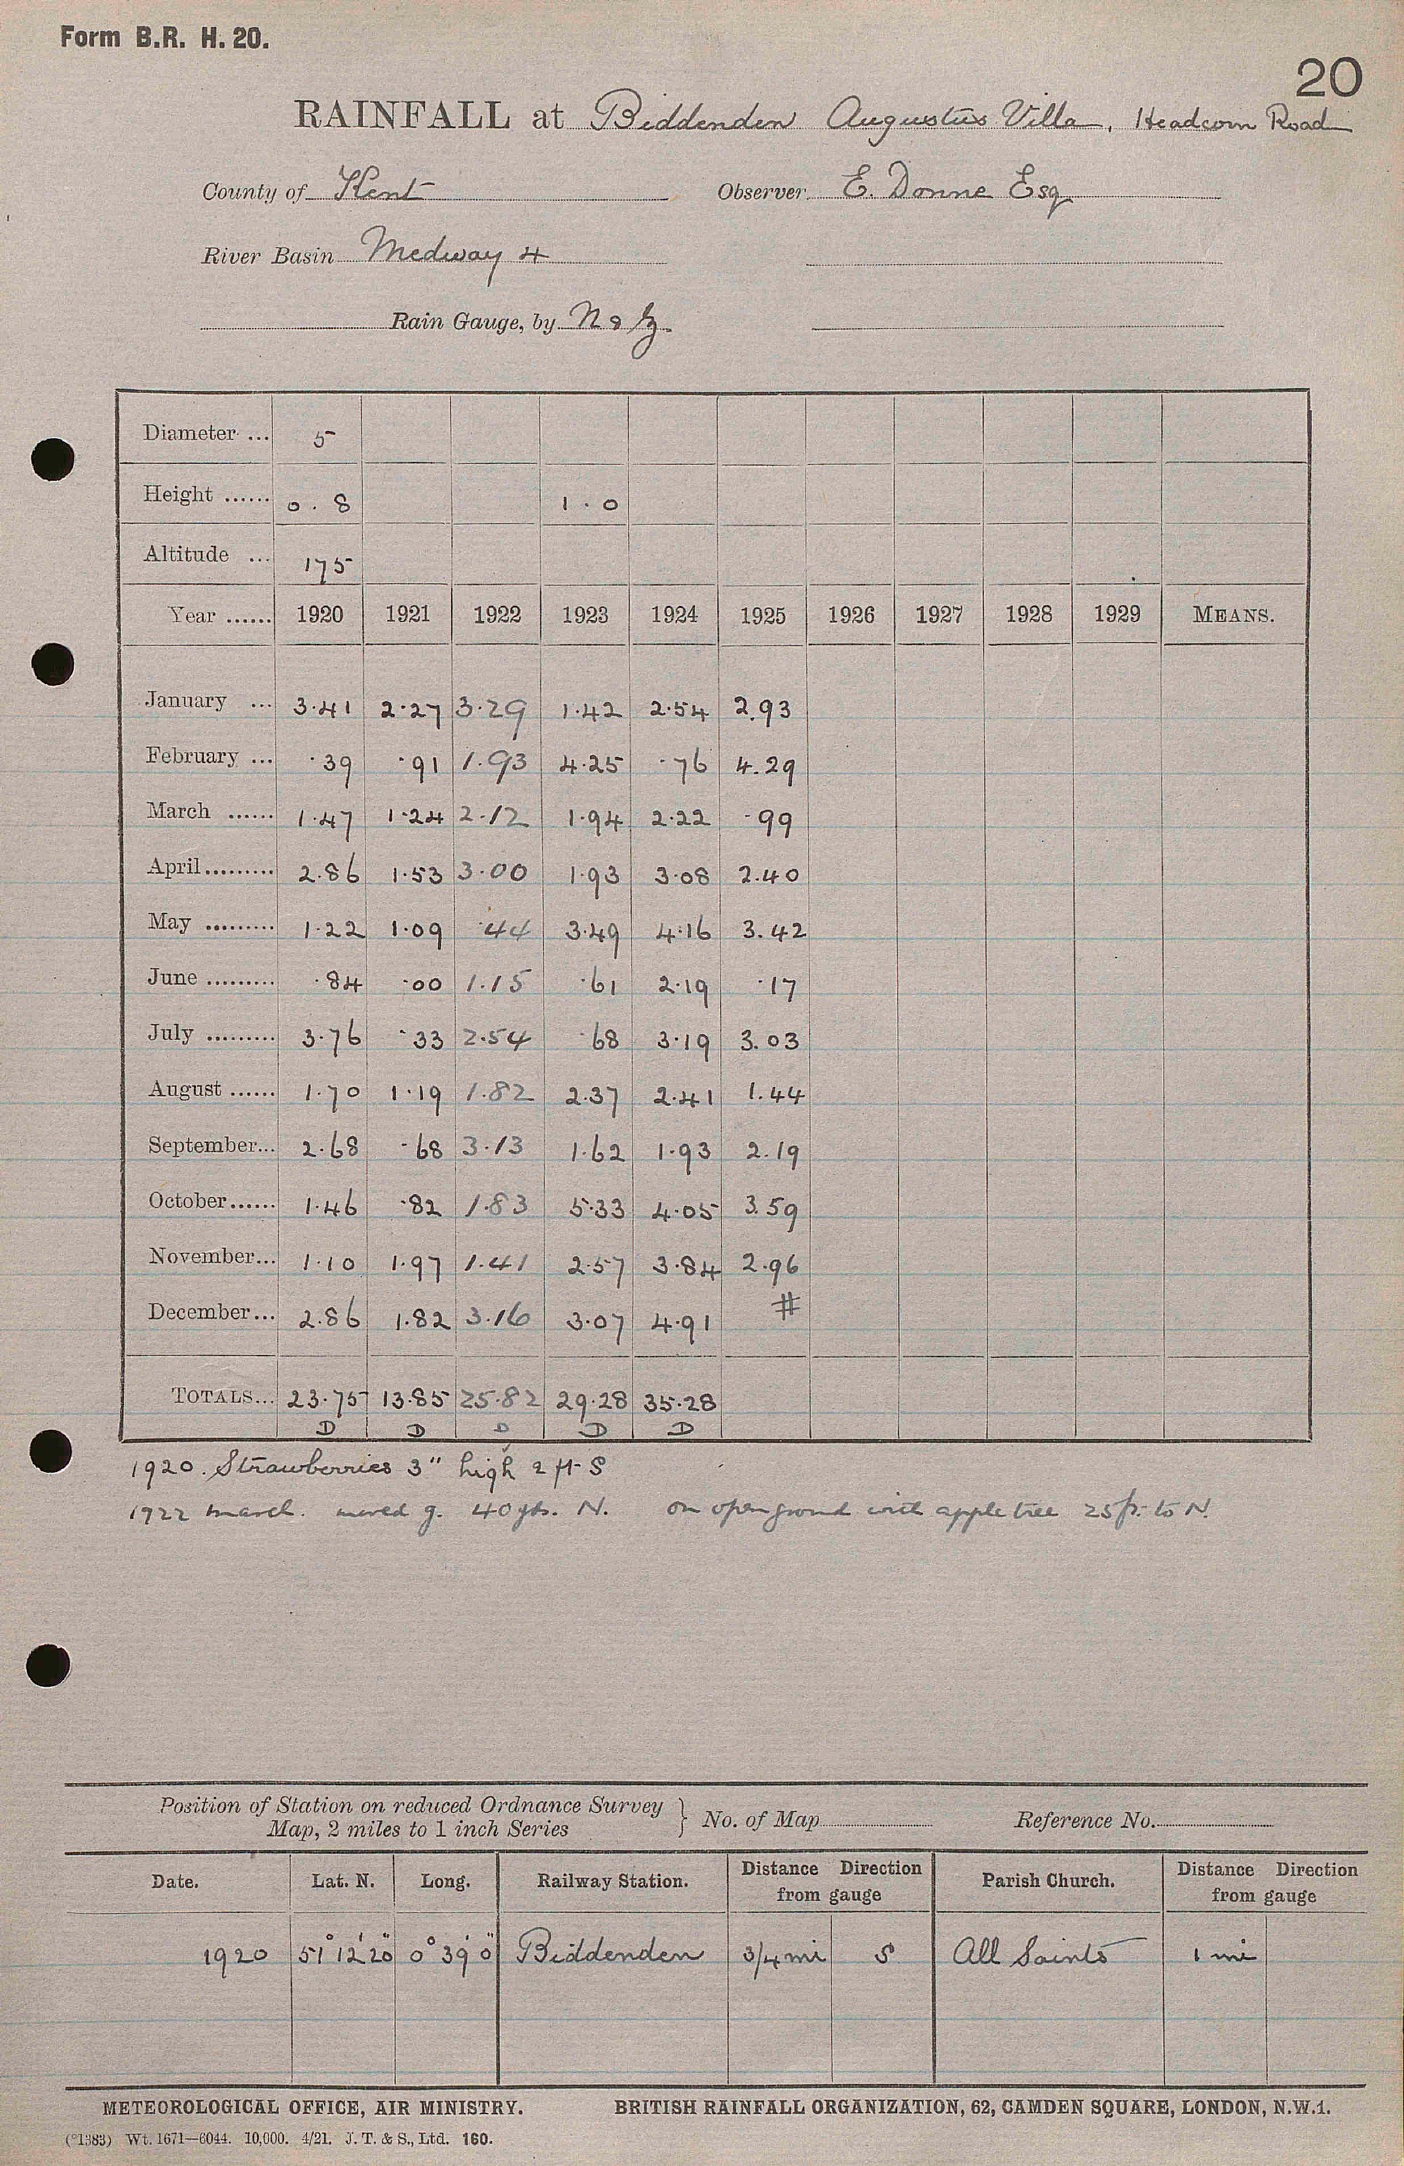 Form B.R. H. 20.
20
RAINFALL at Biddenden Augustus Villa, Headcorn Road
County of Kent Observer E. Donne Esq
River Basin Medway 4
Rain Gauge, by N & Z
Diameter ... 5
Height ...... 0.8 1.0
Altitude ... 175
Year ...... 1920 1921 1922 1923 1924 1925 1926 1927 1928 1929 MEANS.
January ... 3.41 2.27 3.29 1.42 2.54 2.93
February ... .39 .91 1.93 4.25 .76 4.29
March ...... 1.47 1.24 2.12 1.94 2.22 .99
April ......... 2.86 1.53 3.00 1.93 3.08 2.40
May ......... 1.22 1.09 .44 3.49 4.16 3.42
June ......... .84 .00 1.15 .61 2.19 .17
July ......... 3.76 .33 2.54 .68 3.19 3.03
August ...... 1.70 1.19 1.82 2.37 2.41 1.44
September... 2.68 .68 3.13 1.62 1.93 2.19
October ...... 1.46 .82 1.83 5.33 4.05 3.59
November... 1.10 1.97 1.41 2.57 3.84 2.96
December... 2.86 1.82 3.16 3.07 4.91 #
TOTALS... 23.75 13.85 25.82 29.28 35.28
D D D D D
1920. Strawberries 3" high 2 ft S
1922 march. moved g. 40 yds. N. on open ground with apple tree 25 ft. to N.
Position of Station on reduced Ordnance Survey
Map, 2 miles to 1 inch Series } No. of Map Reference No.
Date. Lat. N. Long. Railway Station. Distance Direction from gauge Parish Church. Distance Direction from gauge
1920 51° 12' 20" 0° 39' 0" Biddenden 3/4 mi S All Saints 1 mi
METEOROLOGICAL OFFICE, AIR MINISTRY. BRITISH RAINFALL ORGANIZATION, 62, CAMDEN SQUARE, LONDON, N.W.1.
(°1383) Wt. 1671—6044. 10,000. 4/21. J. T. & S., Ltd. 160.